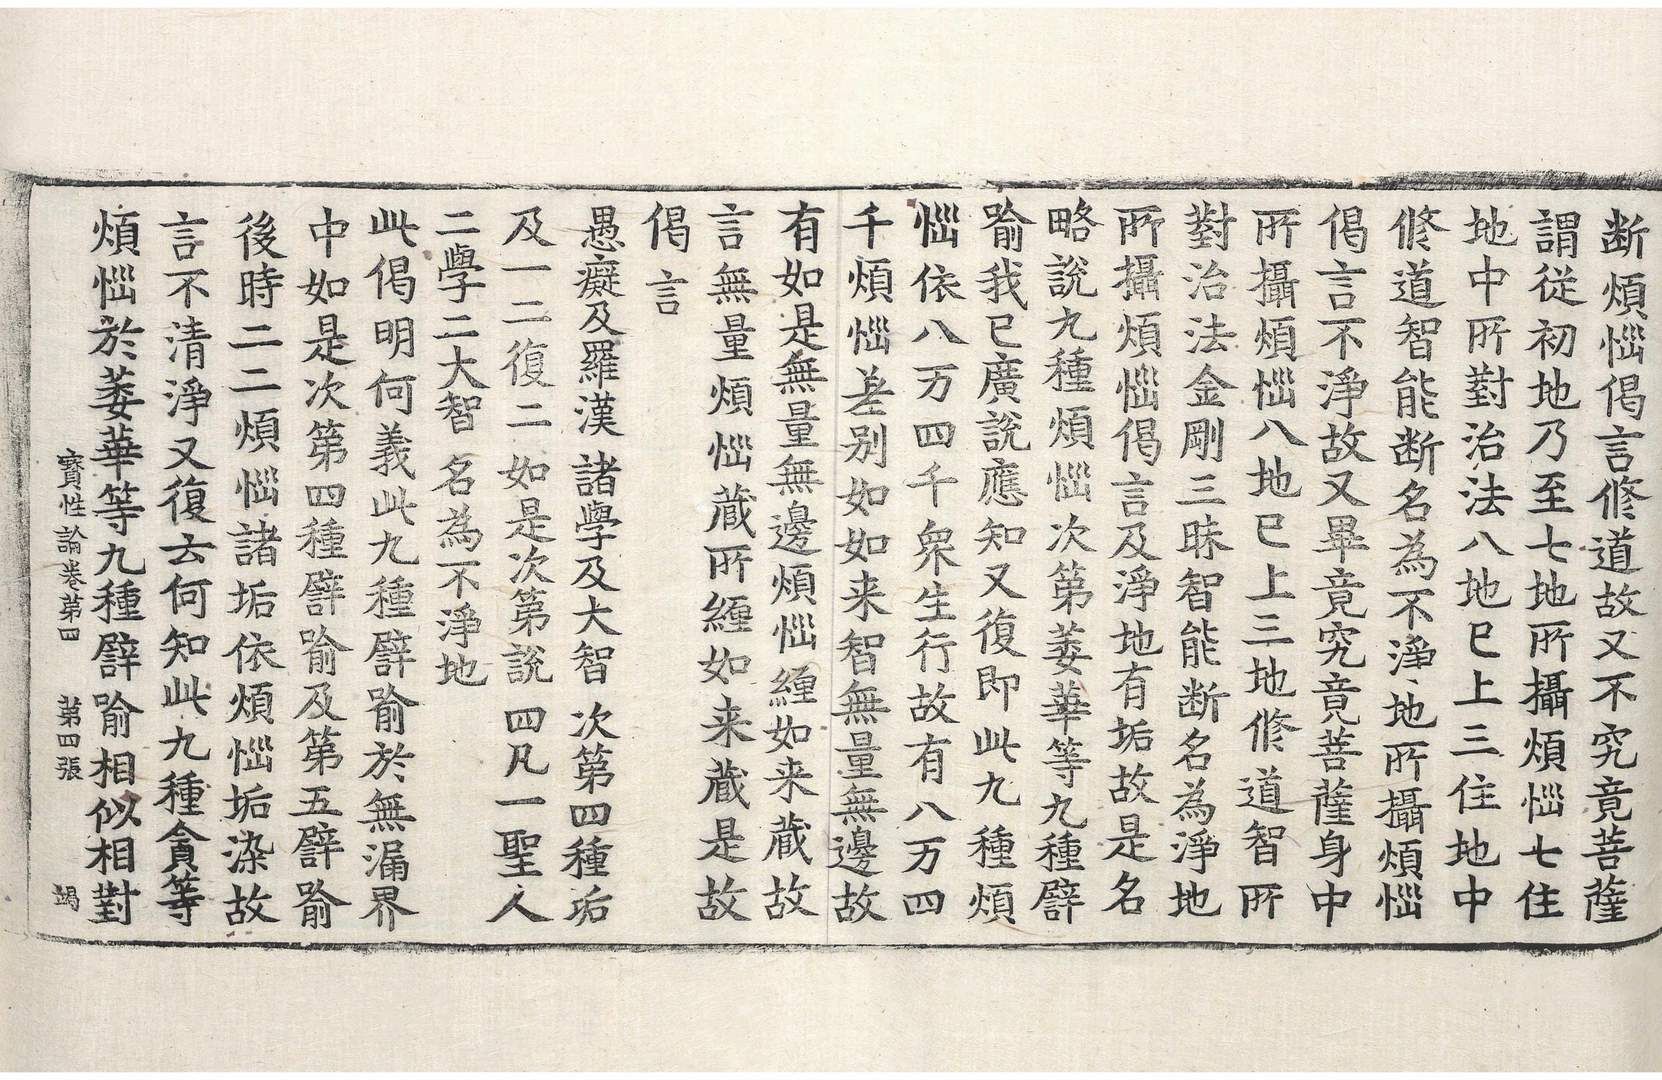 断煩惱偈言修道故又不究竟菩薩
謂従初地乃至七地所攝煩惱七住
地中所對治法八地已上三住地中
修道智能断名為不淨地所攝煩惱
偈言不淨故又畢竟究竟菩薩身中
所攝煩惱八地已上三地修道智所
對治法金剛三昧智能断名為淨地
所攝煩惱偈言及淨地有垢故是名
略說九種煩惱次第萎華等九種譬
喻我已廣說應知又復即此九種煩
惱依八万四千衆生行故有八万四
千煩惱差别如如来智無量無邊故
有如是無量無邊煩惱纏如来蔵故
言無量煩惱蔵所纏如来蔵是故
偈言
愚癡及羅漢 諸學及大智 次第四種垢
及一二復二 如是次第說 四凡一聖人
二學二大智 名為不淨地
此偈明何義此九種譬喻於無漏界
中如是次第四種譬喻及第五譬喻
後時二二煩惱諸垢依煩惱垢染故
言不清淨又復云何知此九種貪等
煩惱於萎華等九種譬喻相似相對
寶性論卷第四 第四張 竭